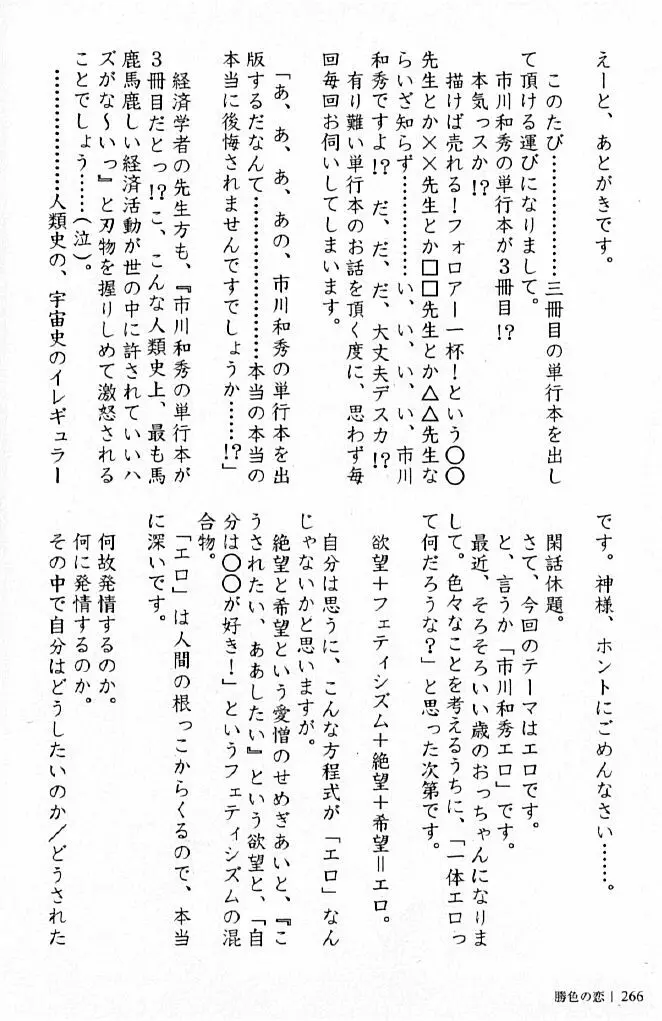 えーと、あとがきです。
このたび……………三冊目の単行本を出し
て頂ける運びになりまして。
市川和秀の単行本が３冊目!?
本気っスか!?
描けば売れる！フォロアー一杯！という〇〇
先生とか××先生とか□□先生とか△△先生な
らいざ知らず……………い、い、い、い、市川
和秀ですよ!?　だ、だ、だ、大丈夫デスカ!?
有り難い単行本のお話を頂く度に、思わず毎
回毎回お伺いしてしまいます。
「あ、あ、あ、あの、市川和秀の単行本を出
版するだなんて………………………本当の本当の
本当に後悔されませんですでしょうか……!?」
経済学者の先生方も、『市川和秀の単行本が
３冊目だとっ!?こ、こんな人類史上、最も馬
鹿馬鹿しい経済活動が世の中に許されていいハ
ズがな〜いっ』と刃物を握りしめて激怒される
ことでしょう……（泣）。
…………………人類史の、宇宙史のイレギュラー
です。神様、ホントにごめんなさい……。
閑話休題。
さて、今回のテーマはエロです。
と、言うか「市川和秀エロ」です。
最近、そろそろいい歳のおっちゃんになりま
して。色々なことを考えるうちに、「一体エロっ
て何だろうな？」と思った次第です。
欲望＋フェティシズム＋絶望＋希望＝エロ。
自分は思うに、こんな方程式が「エロ」なん
じゃないかと思いますが。
絶望と希望という愛憎のせめぎあいと、『こ
うされたい、ああしたい』という欲望と、「自
分は〇〇が好き！」というフェティシズムの混
合物。
「エロ」は人間の根っこからくるので、本当
に深いです。
何故発情するのか。
何に発情するのか。
その中で自分はどうしたいのか／どうされた
勝色の恋｜266